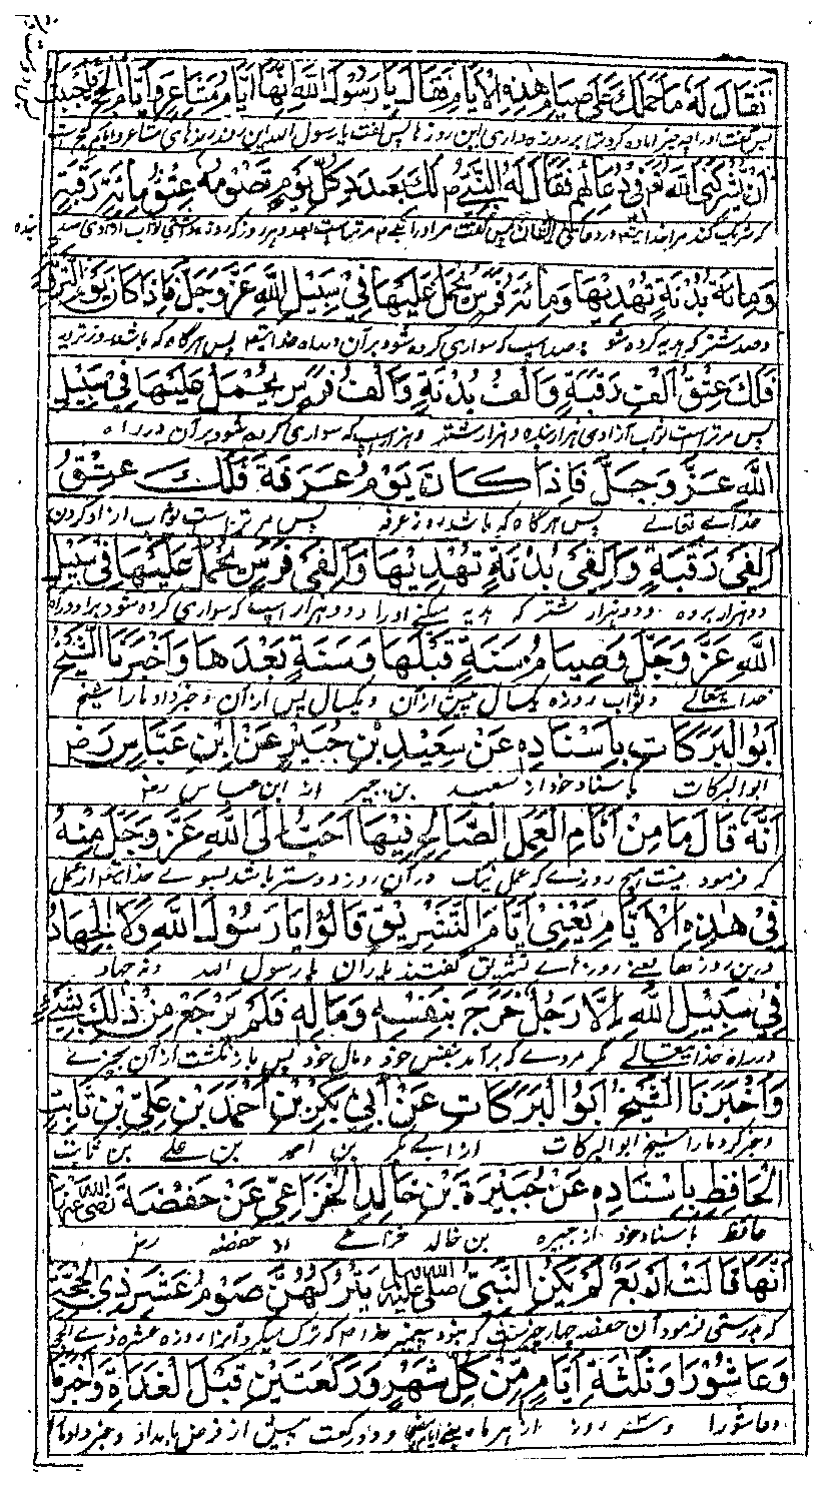 فَقَالَ لَهٗ مَا حَمَلَكَ عَلٰی صِیَامِ هٰذِهِ الْاَیَّامِ فَقَالَ یَا رَسُوْلَ اللّٰهِ اِنَّهَا اَیَّامُ مَشَاعِرَ وَاَیَّامُ الْحَجِّ فَاَحْبَبْتُ
پس گفت اورا چه چیز آماده کرد ترا بر روزه داری این روزها پس گفت یا رسول الله این روزها روزهای مشاعر و ایام حج است
اَنْ یُّشْرِکَنِیَ اللّٰهُ تَعَ فِیْ دُعَائِهِمْ فَقَالَ لَهُ النَّبِیُّ لَكَ بِعَدَدِ کُلِّ یَوْمٍ تَصُوْمُهٗ عِتْقُ مِائَةِ رَقَبَةٍ
که شریک کند مرا خدا در دعای ایشان پس گفت مر اورا مر تراست بعدد هر روز که روزه ثواب آزادی صد بنده
وَمِائَةُ بُدْنَةٍ تُهْدِیْهَا وَمِائَةُ فَرَسٍ یُحْمَلُ عَلَیْهَا فِیْ سَبِیْلِ اللّٰهِ عَزَّ وَجَلَّ فَاِذَا کَانَ یَوْمُ التَّرْوِیَةِ
وصد شتر که هدیه کرده شو و صد اسپ که سواری کرده شود بر آن در راه خدا پس هرگاه که باشد روز ترویه
فَلَكَ عِتْقُ اَلْفِ رَقَبَةٍ وَاَلْفُ بُدْنَةٍ وَاَلْفُ فَرَسٍ یُحْمَلُ عَلَیْهَا فِیْ سَبِیْلِ
پس مر تراست ثواب آزادی هزار بنده و هزار شتر و هزار اسپ که سواری کرده شود بر آن در راه
اللّٰهِ عَزَّ وَجَلَّ فَاِذَا کَانَ یَوْمُ عَرَفَةَ فَلَكَ عِتْقُ
خدای تعالے پس هرگاه که باشد روز عرفه پس مر تراست ثواب آزاد کردن
اَلْفَیْ رَقَبَةٍ وَاَلْفَیْ بُدْنَةٍ تُهْدِیْهَا وَاَلْفَیْ فَرَسٍ یُحْمَلُ عَلَیْهَا فِیْ سَبِیْلِ
دو هزار برده و دو هزار شتر که هدیه میکنے اورا و دو هزار اسپ که سواری کرده شود بر او در راه
اللّٰهِ عَزَّ وَجَلَّ وَصِیَامُ سَنَةٍ قَبْلَهَا وَسَنَةٍ بَعْدَهَا وَاَخْبَرَنَا الشَّیْخُ
خدا تعالے و ثواب روزه یکسال پیش از آن و یکسال پس از آن و خبر داد ما را شیخ
اَبُو الْبَرَکَاتِ بِاِسْنَادِهٖ عَنْ سَعِیْدِ بْنِ جُبَیْرٍ عَنْ ابْنِ عَبَّاسٍ رَضِ
ابو البرکات باسناد خود از سعید بن جبیر از ابن عباس رضـ
اَنَّهٗ قَالَ مَا مِنْ اَیَّامٍ الْعَمَلُ الصَّالِحُ فِیْهَا اَحَبُّ اِلَی اللّٰهِ عَزَّ وَجَلَّ مِنْهُ
که فرمود نیست هیچ روزے که عمل نیک در آن روز دوستر باشد بسوے خدا از عمل
فِیْ هٰذِهِ الْاَیَّامِ یَعْنِیْ اَیَّامَ التَّشْرِیْقِ قَالُوْا یَا رَسُوْلَ اللّٰهِ وَلَا الْجِهَادُ
درین روزها یعنے روزهاے تشریق گفتند یاران یا رسول الله و نه جهاد
فِیْ سَبِیْلِ اللّٰهِ اِلَّا رَجُلٌ خَرَجَ بِنَفْسِهٖ وَمَالِهٖ فَلَمْ یَرْجِعْ مِنْ ذٰلِكَ بِشَیْءٍ
در راه خدا تعالے مگر مردے که بر آمد بنفس خود و مال خود پس باز نگشت از آن بچیزے
وَاَخْبَرَنَا الشَّیْخُ اَبُو الْبَرَکَاتِ عَنْ اَبِیْ بَکْرِ بْنِ اَحْمَدَ بْنِ عَلِیِّ بْنِ ثَابِتٍ
وخبر کرد ما را شیخ ابو البرکات از ابے بکر بن احمد بن علے بن ثابت
الْحَافِظِ بِاِسْنَادِهٖ عَنْ جُبَیْرَةَ بْنِ خَالِدِ الْخُزَاعِیِّ عَنْ حَفْصَةَ رَضِیَ اللّٰهُ عَنْهَا
حافظ باسناد خود از جبیره بن خالد خزاعے از حفصه رضـ
اَنَّهَا قَالَتْ اَرْبَعٌ لَمْ یَکُنِ النَّبِیُّ صَلَّی اللّٰهُ عَلَیْهِ وَسَلَّمَ یَتْرُکُهُنَّ صَوْمُ عَشْرِ ذِی الْحِجَّةِ
که بدرستی فرمود آن حفصه چهار چیز است که نبود پیغمبر خدا که ترک میکرد آنرا روزه عشره ذے الحجه
وَعَاشُوْرَا وَثَلٰثَةِ اَیَّامٍ مِّنْ کُلِّ شَهْرٍ وَرَکْعَتَیْنِ قَبْلَ الْغَدَاةِ وَاَخْبَرَنَا
وعاشورا و سه روز از هر ماه یعنے ایام بیض و دو رکعت پیش از فرض بامداد و خبر داد ما را